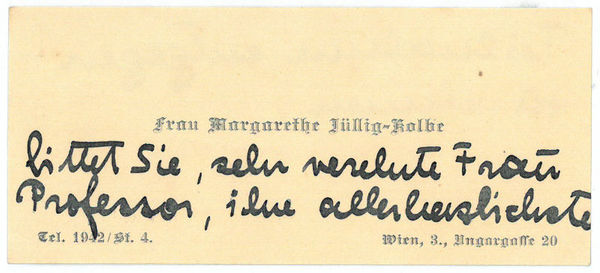 Frau Margarethe Jüllig-Kolbe
bittet Sie, sehr verehrte Frau
Professor, ihre allerherzlichste
Tel. 1942/St. 4.
Wien, 3., Ungargasse 20